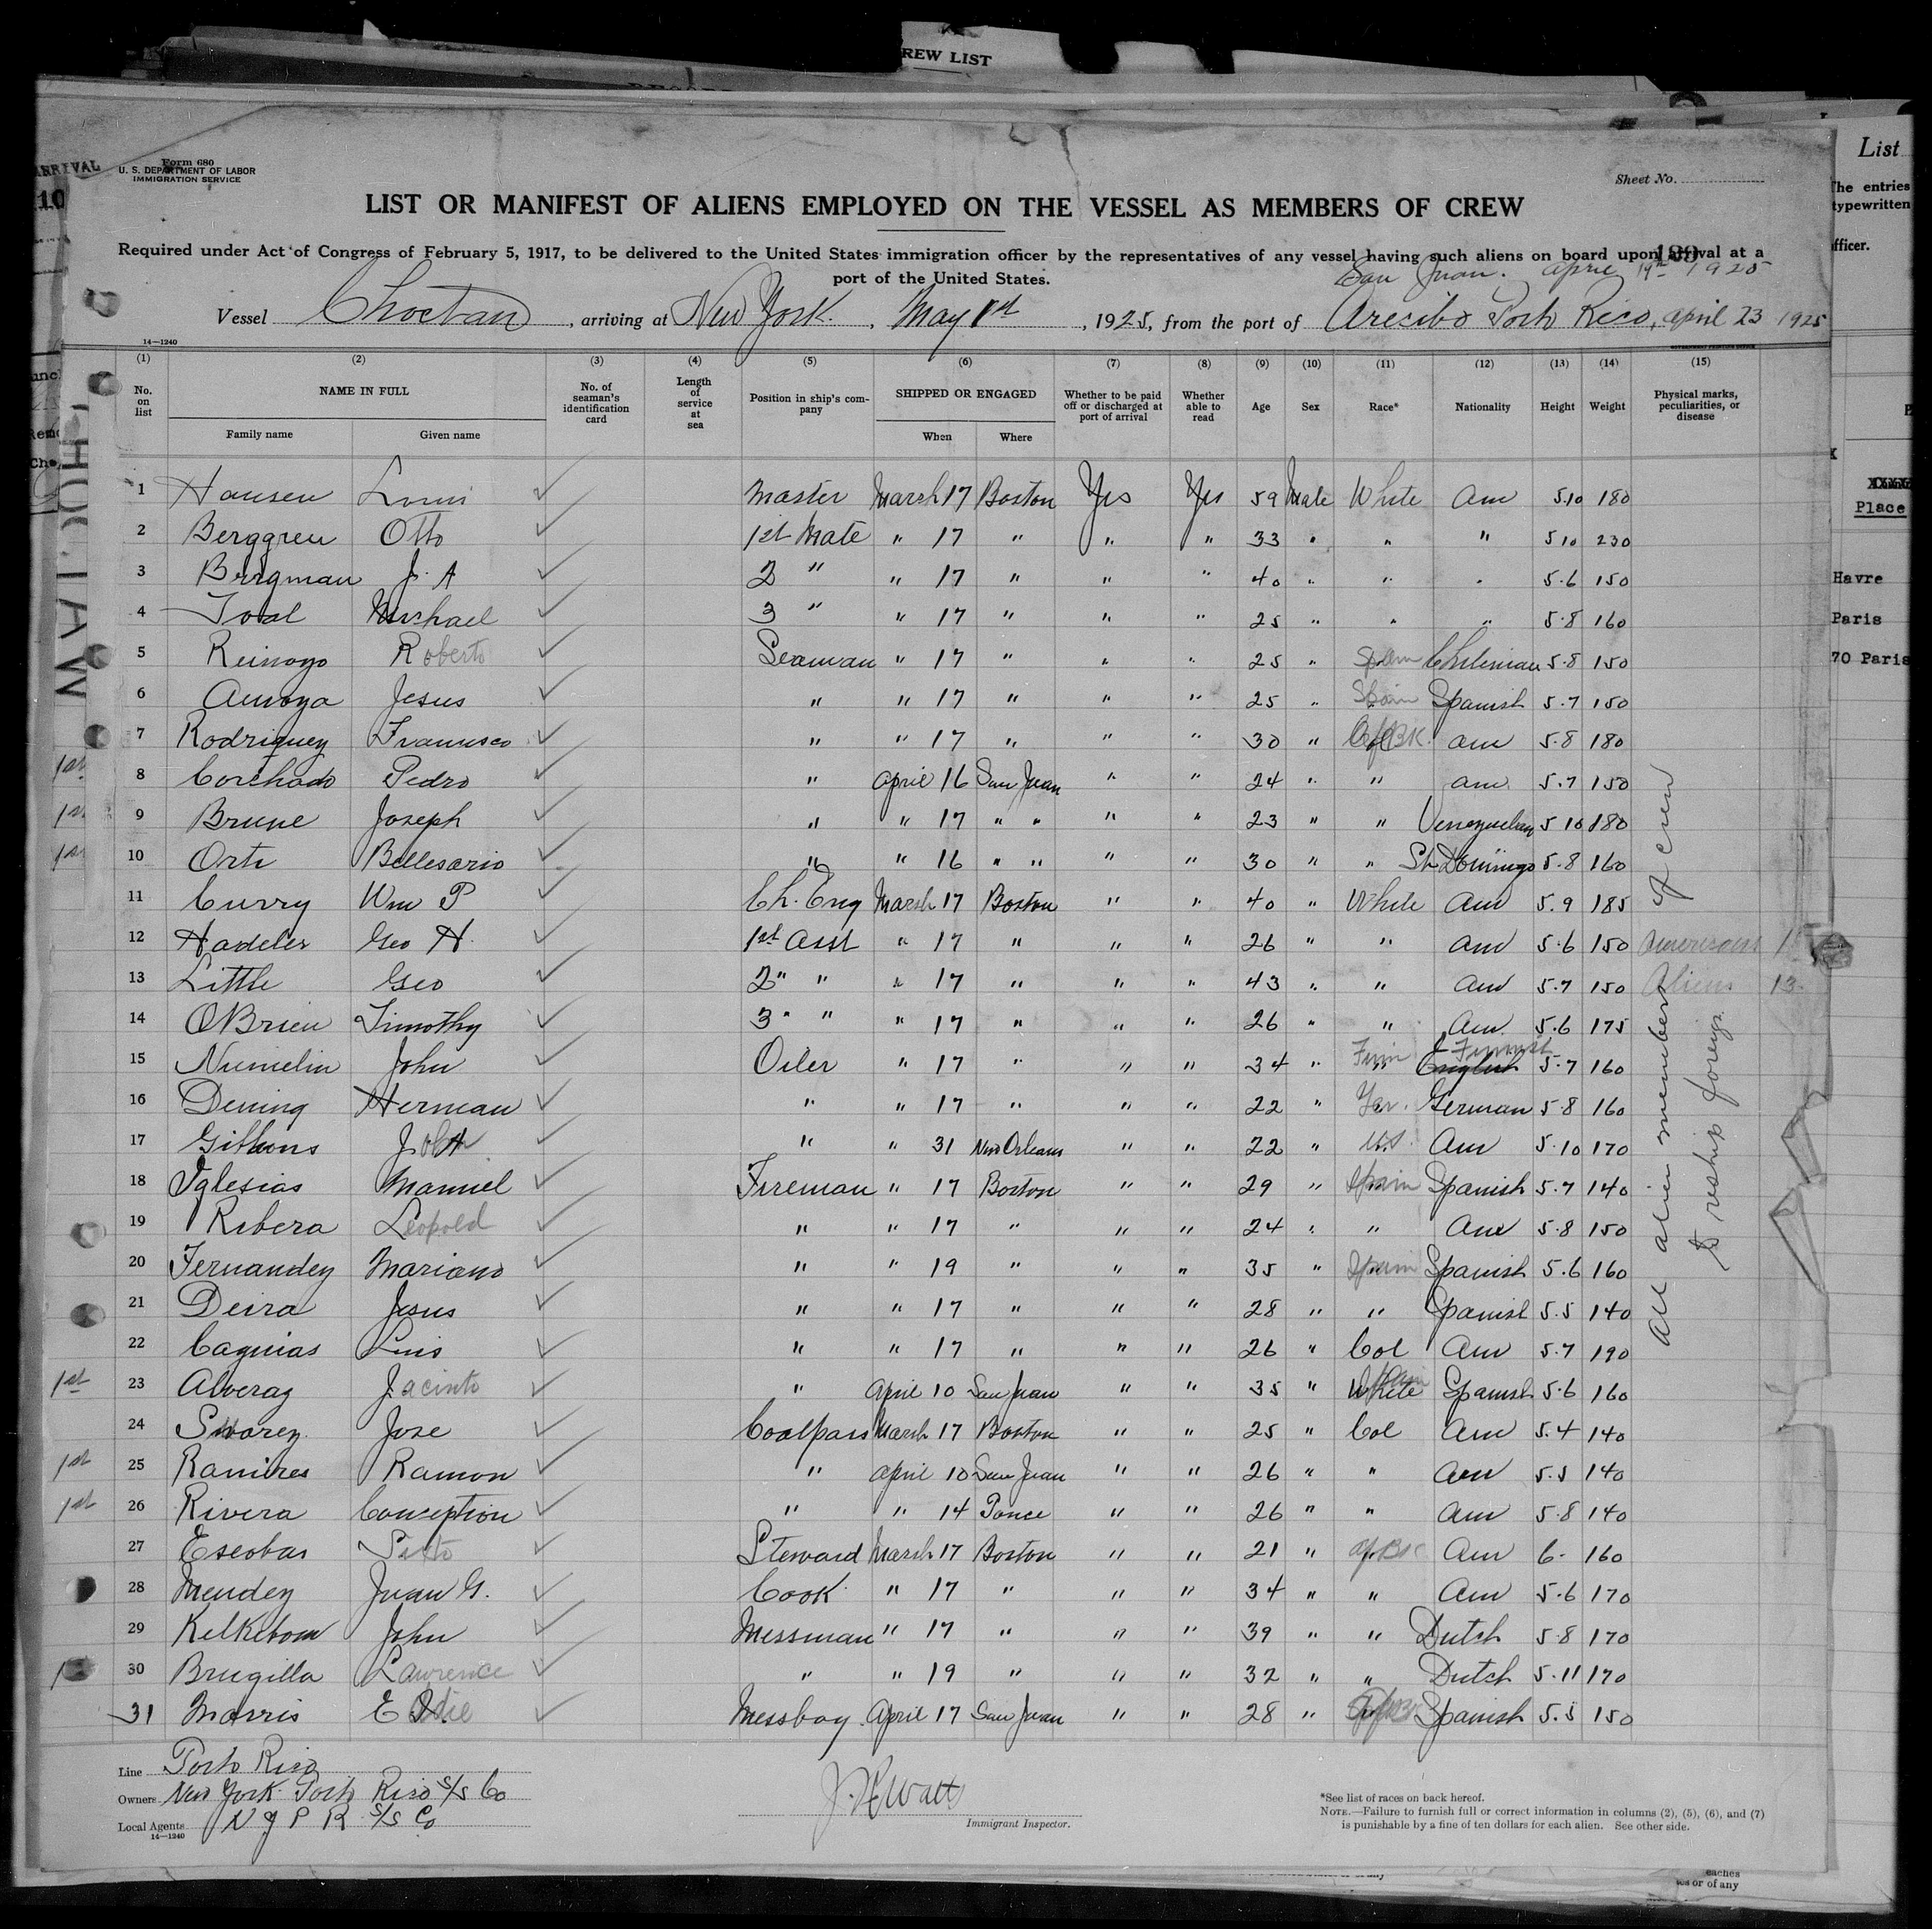 REW LIST
ARRIVAL
10
Form 680
U. S. DEPARTMENT OF LABOR
IMMIGRATION SERVICE
Sheet No.
LIST OR MANIFEST OF ALIENS EMPLOYED ON THE VESSEL AS MEMBERS OF CREW
Required under Act of Congress of February 5, 1917, to be delivered to the United States immigration officer by the representatives of any vessel having such aliens on board upon arrival at a
port of the United States.
San Juan. April 19th 1925
Vessel Choctaw, arriving at New York, May 1st, 1925, from the port of Arecibo Porto Rico, April 23 1925
14—1240
(1) (2) (3) (4) (5) (6) (7) (8) (9) (10) (11) (12) (13) (14) (15)
No. on list NAME IN FULL No. of seaman's identification card Length of service at sea Position in ship's company SHIPPED OR ENGAGED Whether to be paid off or discharged at port of arrival Whether able to read Age Sex Race* Nationality Height Weight Physical marks, peculiarities, or disease
Family name Given name When Where
1 Hansen Louis Master March 17 Boston Yes Yes 59 Male White Am 5.10 180
2 Berggren Otto 1st Mate " 17 " " " 33 " " " 5 10 230
3 Bergman J. A 2 " " 17 " " " 40 " " " 5.6 150
4 Toal Michael 3 " " 17 " " " 25 " " " 5.8 160
5 Reinoyo Roberto Seaman " 17 " " " 25 " Spain 5.8 150
6 Jesus " " 17 " " " 25 " Spain Spanish 5.7 150
7 Rodriguez Francisco " " 17 " " " 30 " Am 5.8 180
1st 8 Corchado Pedro " April 16 San Juan " " 24 " " Am 5.7 150
1st 9 Brune Joseph " " 17 " " " " 23 " " Venezuelan 5 10 180
1st 10 Orti Bellesario " " 16 " " " " 30 " " St Domingo 5.8 160
11 Curry Wm P Ch. Eng March 17 Boston " " 40 " White Am 5.9 185
12 Hadeler Geo H. 1st Asst " 17 " " " 26 " " Am 5.6 150 Americans
13 Little Geo 2" " " 17 " " " 43 " " Am 5.7 150 Aliens 13
14 OBrien Timothy 3" " " 17 " " " 26 " " Am 5.6 175
15 Numelin John Oiler " 17 " " " 34 " Finn English Finnish 5.7 160
16 Dening Herman " " 17 " " " 22 " Ger. German 5 8 160
17 Gibbons John " " 31 New Orleans " " 22 " U.S. Am 5.10 170
18 Yglesias Manuel Fireman " 17 Boston " " 29 " Spain Spanish 5.7 140
19 Ribera Leopold " " 17 " " " 24 " " Am 5.8 150
20 Fernandez Mariano " " 19 " " " 35 " Spain Spanish 5.6 160
21 Deira Jesus " " 17 " " " 28 " " Spanish 5.5 140
22 Caguias Luis " " 17 " " " 26 " Col Am 5.7 190
1st 23 Alveraz Jacinto " April 10 San Juan " " 35 " White Spain Spanish 5.6 160
24 Swarez Jose Coalpass March 17 Boston " " 25 " Col Am 5.4 140
1st 25 Ramires Ramon " April 10 San Juan " " 26 " " Am 5.5 140
1st 26 Rivera Conception " " 14 Ponce " " 26 " " Am 5.8 140
27 Escobar Sixto Steward March 17 Boston " " 21 " Af. Bk Am 6. 160
28 Mendez Juan G. Cook " 17 " " " 34 " " Am 5.6 170
29 Kelkebom John Messman " 17 " " " 39 " " Dutch 5.8 170
30 Brugilla Lawrence " " 19 " " " 32 " " Dutch 5.11 170
31 Morris Eddie Messboy April 17 San Juan " " 28 " Spanish 5.5 150
All alien members of crew
to reship foreign
Line Porto Rico
Owners New York Porto Rico S/S Co
Local Agents N Y P R S/S Co
14—1240
Immigrant Inspector.
*See list of races on back hereof.
NOTE.—Failure to furnish full or correct information in columns (2), (5), (6), and (7)
is punishable by a fine of ten dollars for each alien. See other side.
CHOCTAW
List
The entries
typewritten
officer.
Place
Havre
Paris
70 Paris
eaches
es or of any